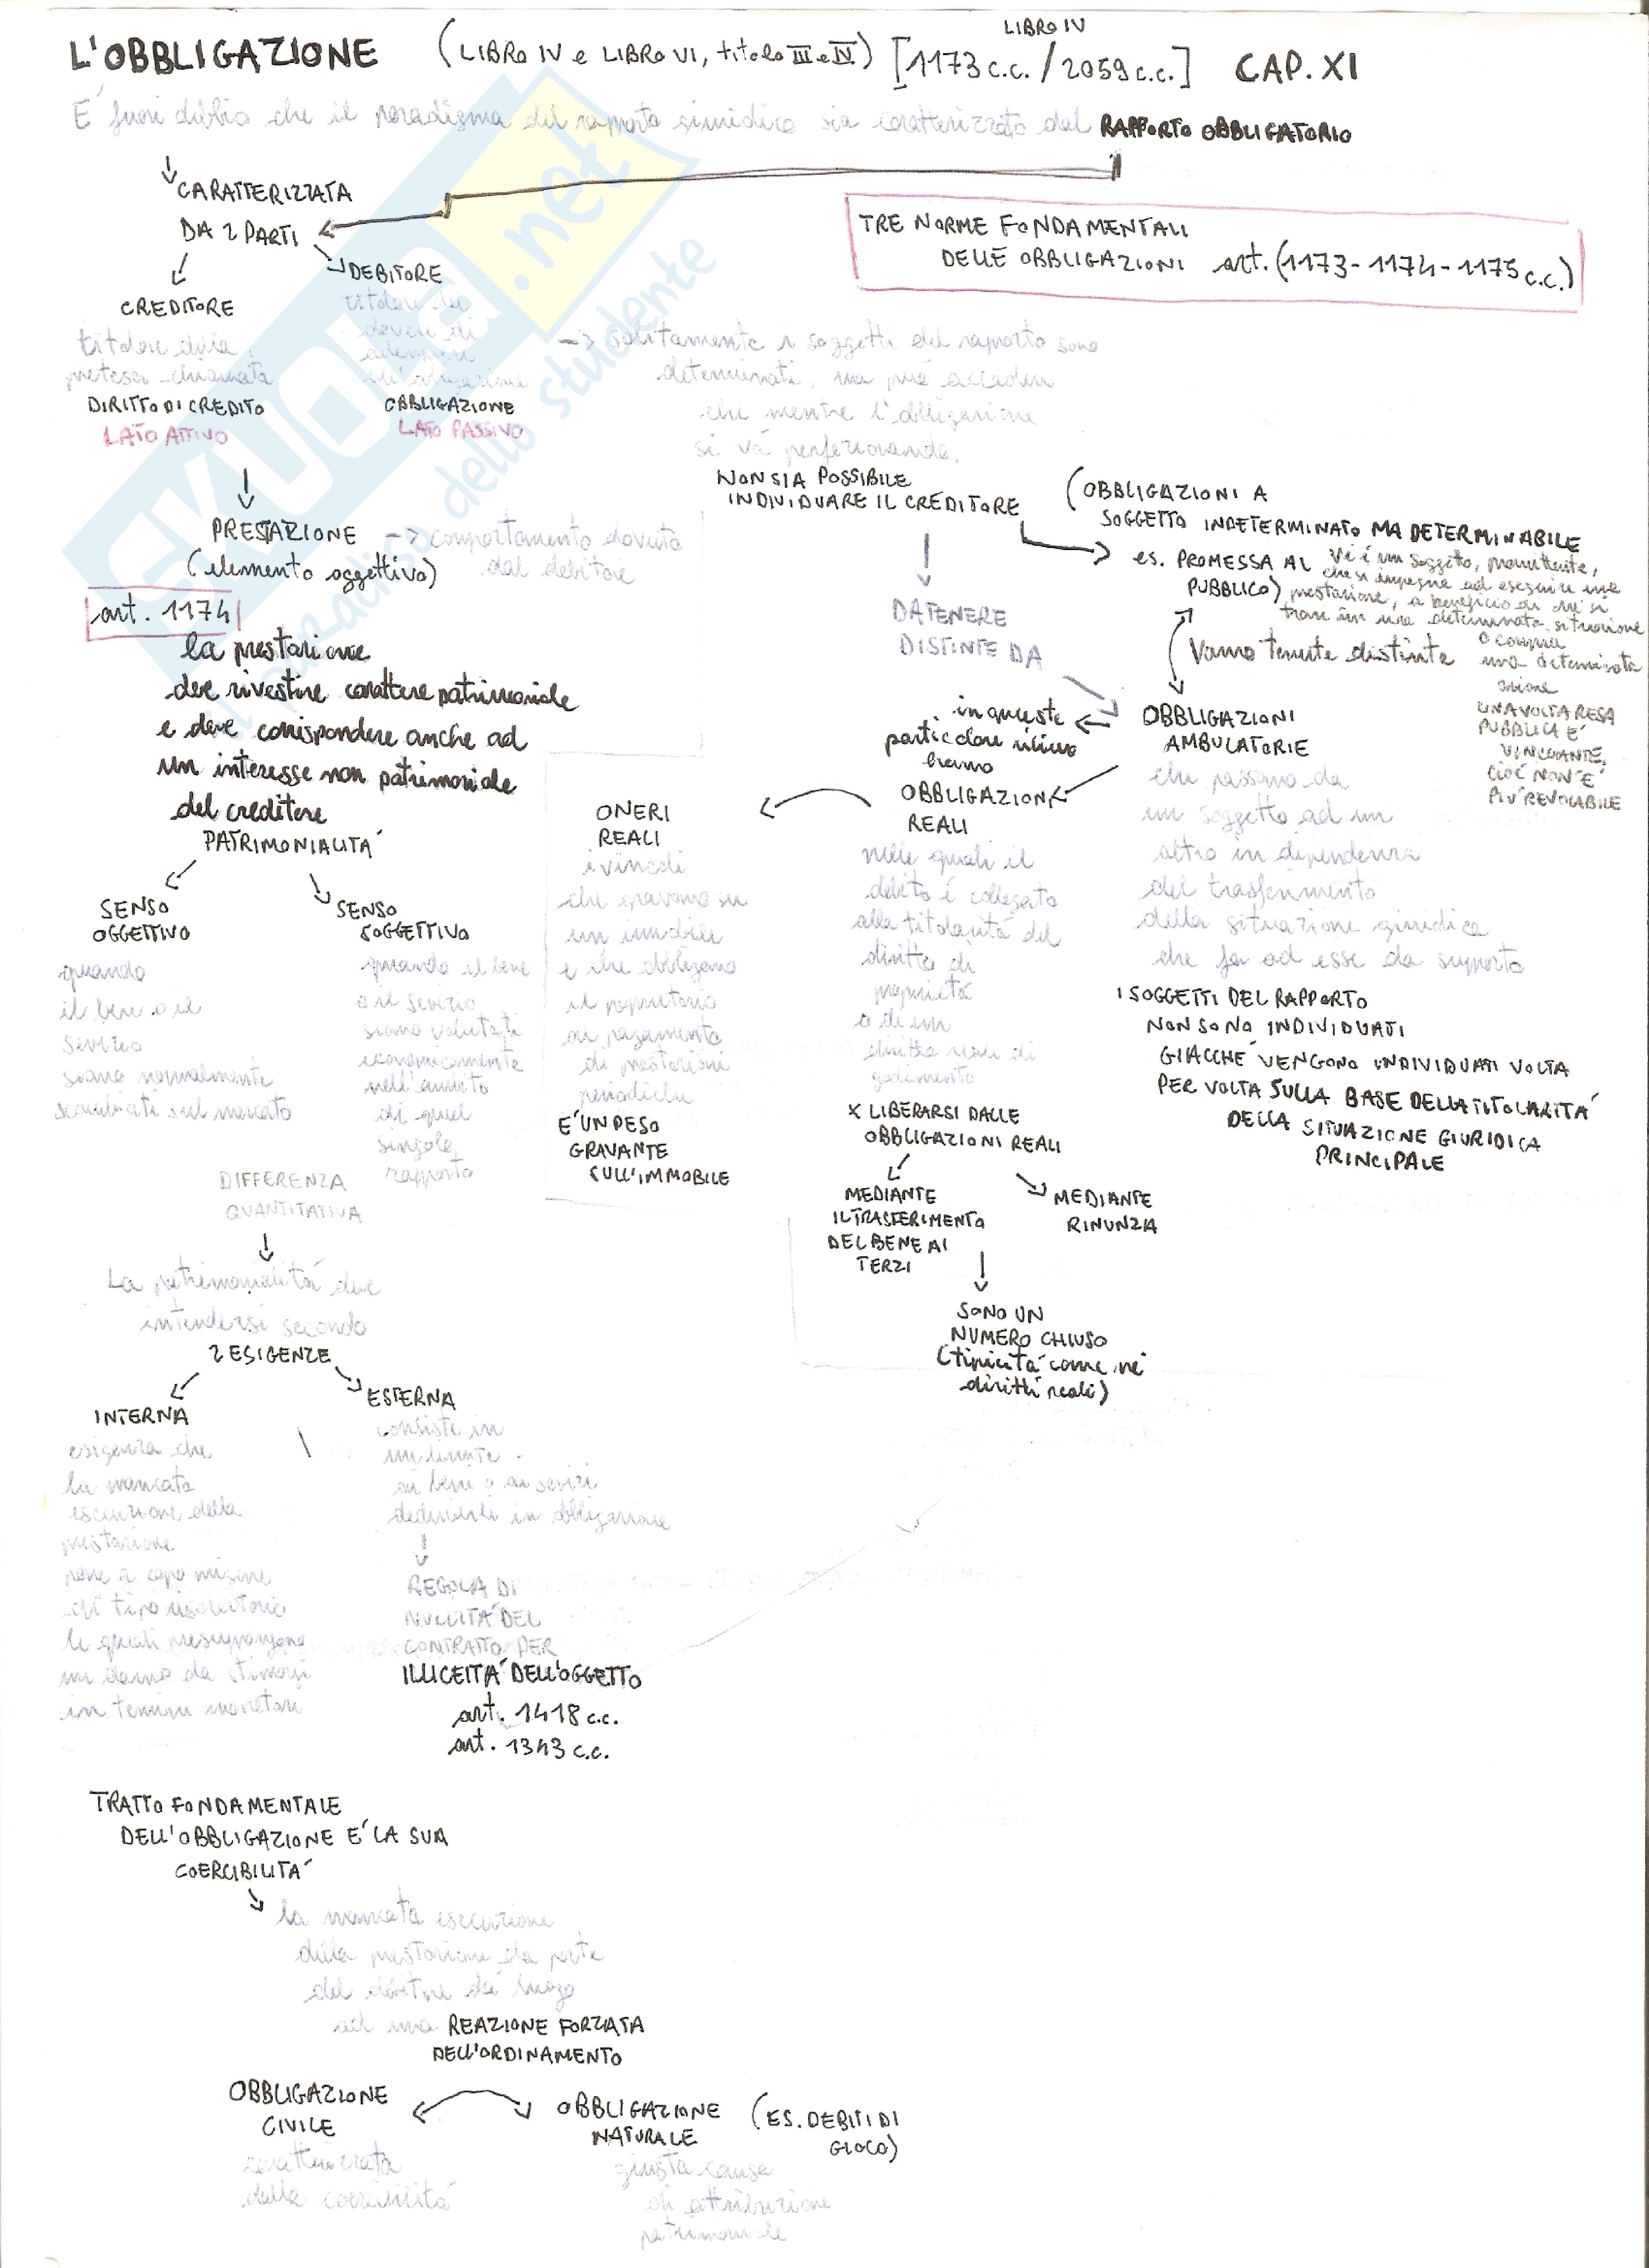 LIBRO IV
L'OBBLIGAZIONE (LIBRO IV e LIBRO VI, titolo III e IV) [1173 c.c. / 2059 c.c.] CAP. XI
E' fuori dubbio che il paradigma del rapporto giuridico sia caratterizzato dal RAPPORTO OBBLIGATORIO
CARATTERIZZATA
DA 2 PARTI
TRE NORME FONDAMENTALI
DELLE OBBLIGAZIONI art. (1173-1174-1175 c.c.)
DEBITORE
titolare del
dovere di
adempiere
all'obbligazione
OBBLIGAZIONE
LATO PASSIVO
CREDITORE
titolare della
pretesa chiamata
DIRITTO DI CREDITO
LATO ATTIVO
-> solitamente i soggetti del rapporto sono
determinati, ma può accadere
che mentre l'obbligazione
si va perfezionando,
NON SIA POSSIBILE
INDIVIDUARE IL CREDITORE
(OBBLIGAZIONI A
SOGGETTO INDETERMINATO MA DETERMINABILE
es. PROMESSA AL
PUBBLICO)
Vi è un soggetto, promittente,
che si impegna ad eseguire una
prestazione, a beneficio di chi si
trovi in una determinata situazione
o compia
una determinata
azione
UNA VOLTA RESA
PUBBLICA E'
VINCOLANTE,
CIOÈ NON E'
PIU' REVOCABILE
PRESTAZIONE -> comportamento dovuto
(elemento oggettivo) dal debitore
art. 1174
la prestazione
deve rivestire carattere patrimoniale
e deve corrispondere anche ad
un interesse non patrimoniale
del creditore
PATRIMONIALITA'
DA TENERE
DISTINTE DA
Vanno tenute distinte
OBBLIGAZIONI
AMBULATORIE
che passano da
un soggetto ad un
altro in dipendenza
del trasferimento
della situazione giuridica
che fa ad esse da supporto
I SOGGETTI DEL RAPPORTO
NON SONO INDIVIDUATI
GIACCHE' VENGONO INDIVIDUATI VOLTA
PER VOLTA SULLA BASE DELLA TITOLARITA'
DELLA SITUAZIONE GIURIDICA
PRINCIPALE
in queste
particolare rilievo
hanno
OBBLIGAZIONI
REALI
nelle quali il
debito è collegato
alla titolarità del
diritto di
proprietà
o di un
diritto reale di
godimento
X LIBERARSI DALLE
OBBLIGAZIONI REALI
MEDIANTE
IL TRASFERIMENTO
DEL BENE AI
TERZI
MEDIANTE
RINUNZIA
SONO UN
NUMERO CHIUSO
(tipicità come nei
diritti reali)
ONERI
REALI
i vincoli
che gravano su
un immobile
e che obbligano
il proprietario
al pagamento
di prestazioni
periodiche
E' UN PESO
GRAVANTE
SULL'IMMOBILE
SENSO
OGGETTIVO
quando
il bene o il
servizio
siano normalmente
scambiati sul mercato
SENSO
SOGGETTIVO
quando il bene
o il servizio
siano valutati
economicamente
nell'ambito
di quel
singolo
rapporto
DIFFERENZA
QUANTITATIVA
La patrimonialità deve
intendersi secondo
2 ESIGENZE
INTERNA
esigenza che
la mancata
esecuzione della
prestazione
di tipo
le quali presuppongono
un danno da stimarsi
in termini monetari
ESTERNA
consiste in
un limite
ai beni o ai servizi
deducibili in obbligazione
REGOLA DI
NULLITA' DEL
CONTRATTO PER
ILLICEITA' DELL'OGGETTO
art. 1418 c.c.
art. 1343 c.c.
TRATTO FONDAMENTALE
DELL'OBBLIGAZIONE E' LA SUA
COERCIBILITA'
la mancata esecuzione
della prestazione da parte
del debitore dà luogo
ad una REAZIONE FORZATA
DELL'ORDINAMENTO
OBBLIGAZIONE
CIVILE
caratterizzata
dalla coercibilità
OBBLIGAZIONE
NATURALE
(ES. DEBITI DI
GIOCO)
giusta causa
di attribuzione
patrimoniale
SKUOLA.net
il paradiso dello studente